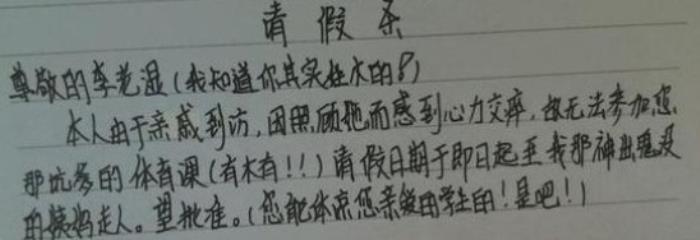 请假条
尊敬的李老湿(我知道你其实姓水的?)
本人由于亲戚到访,因照顾她而感到心力交瘁,故无法参加您
那坑爹的体育课(有木有!!)请假日期于即日起至我那神出鬼没
的姨妈走人。望批准。(您能体谅您亲爱的学生的!是吧!)